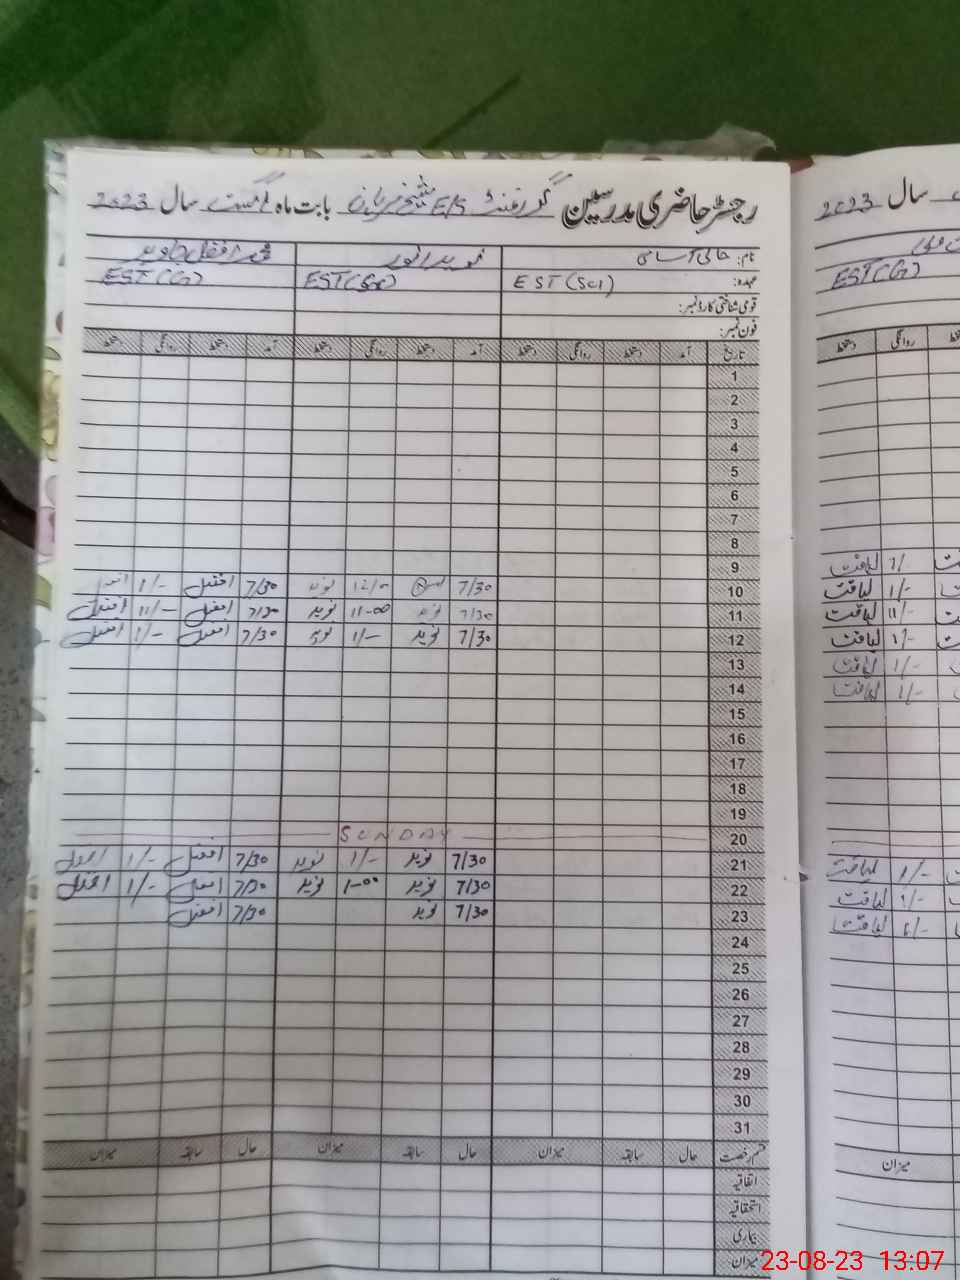 رجسٹر حاضری مدرسین گورنمنٹ E/S شیخ مریان بابت ماہ اگست سال 2023
نام: خالی آسامی نوید انور محمد افضل جاوید
عہدہ: EST (Sci) EST EST (G)
قومی شناختی کارڈ نمبر:
فون نمبر:
تاریخ آمد دستخط روانگی دستخط آمد دستخط روانگی دستخط آمد دستخط روانگی دستخط
1
2
3
4
5
6
7
8
9
10 7/30 12/- 7/30 افضل 1/-
11 7/30 نوید 11-00 نوید 7/30 افضل 11/- افضل
12 7/30 نوید 1/- نوید 7/30 افضل 1/- افضل
13
14
15
16
17
18
19
20 SUNDAY
21 7/30 نوید 1/- نوید 7/30 افضل 1/- افضل
22 7/30 نوید 1-00 نوید 7/30 افضل 1/- افضل
23 7/30 نوید 7/30 افضل
24
25
26
27
28
29
30
31
قسم رخصت حال سابقہ میزان حال سابقہ میزان حال سابقہ میزان
اتفاقیہ
استحقاقیہ
بیماری
میزان
سال 2023
EST (G)
روانگی دستخط
1/- لیاقت
1/- لیاقت
11/- لیاقت
1/- لیاقت
1/- لیاقت
1/- لیاقت
1/- لیاقت
1/- لیاقت
1/- لیاقت
میزان
23-08-23 13:07